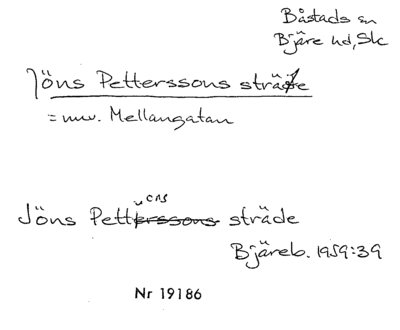 Båstads sn
Bjäre hd, Skc
Jöns Petterssons sträde
= nuv. Mellangatan
ens
Jöns Petterssons sträde
Bjäreb. 1959:39
Nr 19186